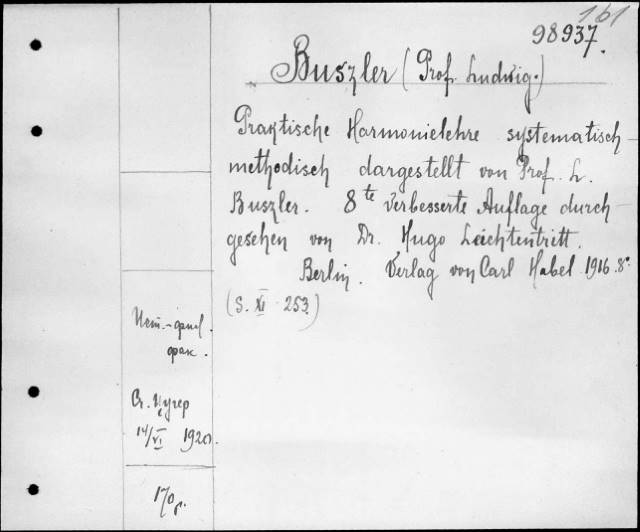 161
98937.
Buszler (Prof. Ludwig.)
Praktische Harmonielehre systematisch-
methodisch dargestellt von Prof. L.
Buszler. 8te verbesserte Auflage durch-
gesehen von Dr. Hugo Leichtentritt.
Berlin. Verlag von Carl Habel 1916. 8°.
(S. XI 253)
фак.
14/VI 1920.
170